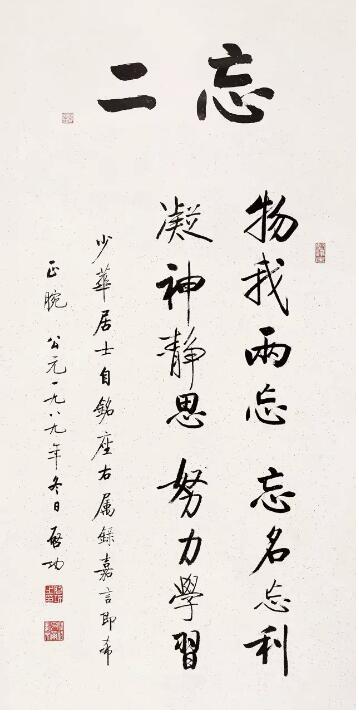 忘二
物我兩忘忘名忘利
凝神靜思努力學習
少華居士自銘座右屬錄嘉言即希
正腕公元一九八九年冬日啟功